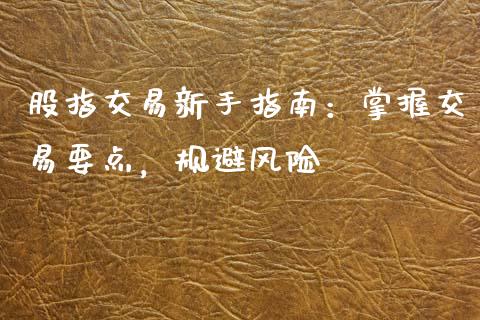 股指交易新手指南：掌握交
易要点，规避风险